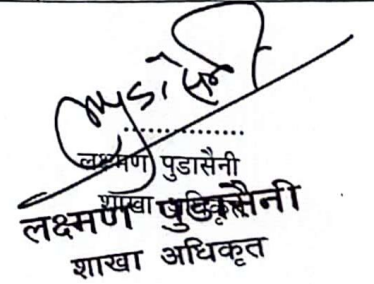 ..............
लक्ष्मण पुडासैनी
शाखा अधिकृत
लक्ष्मण पुडासैनी
शाखा अधिकृत